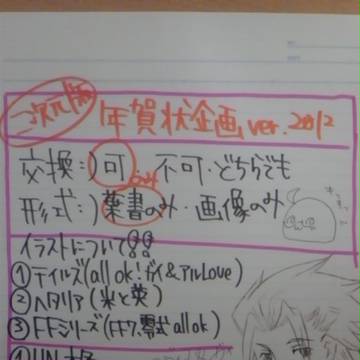 二次元版
年賀状企画ver.2012
交換:)可・不可・どちらでも
形式:)葉書のみ・画像のみ
イラストについて!!
①テイルズ(all ok!ガイ&アルLove)
②ヘタリア(米と英)
③FFシリーズ(FF7、零式all ok)
①HN